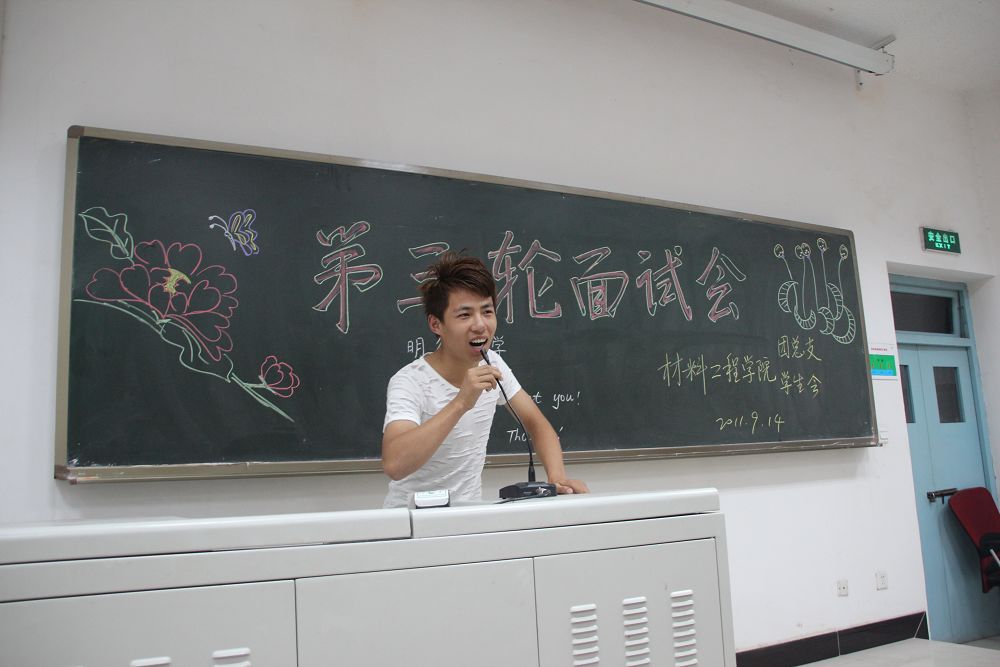 第三轮面试会
明 学
材料工程学院
团总支
学生会
t you!
2011.9.14
安全出口
EXIT